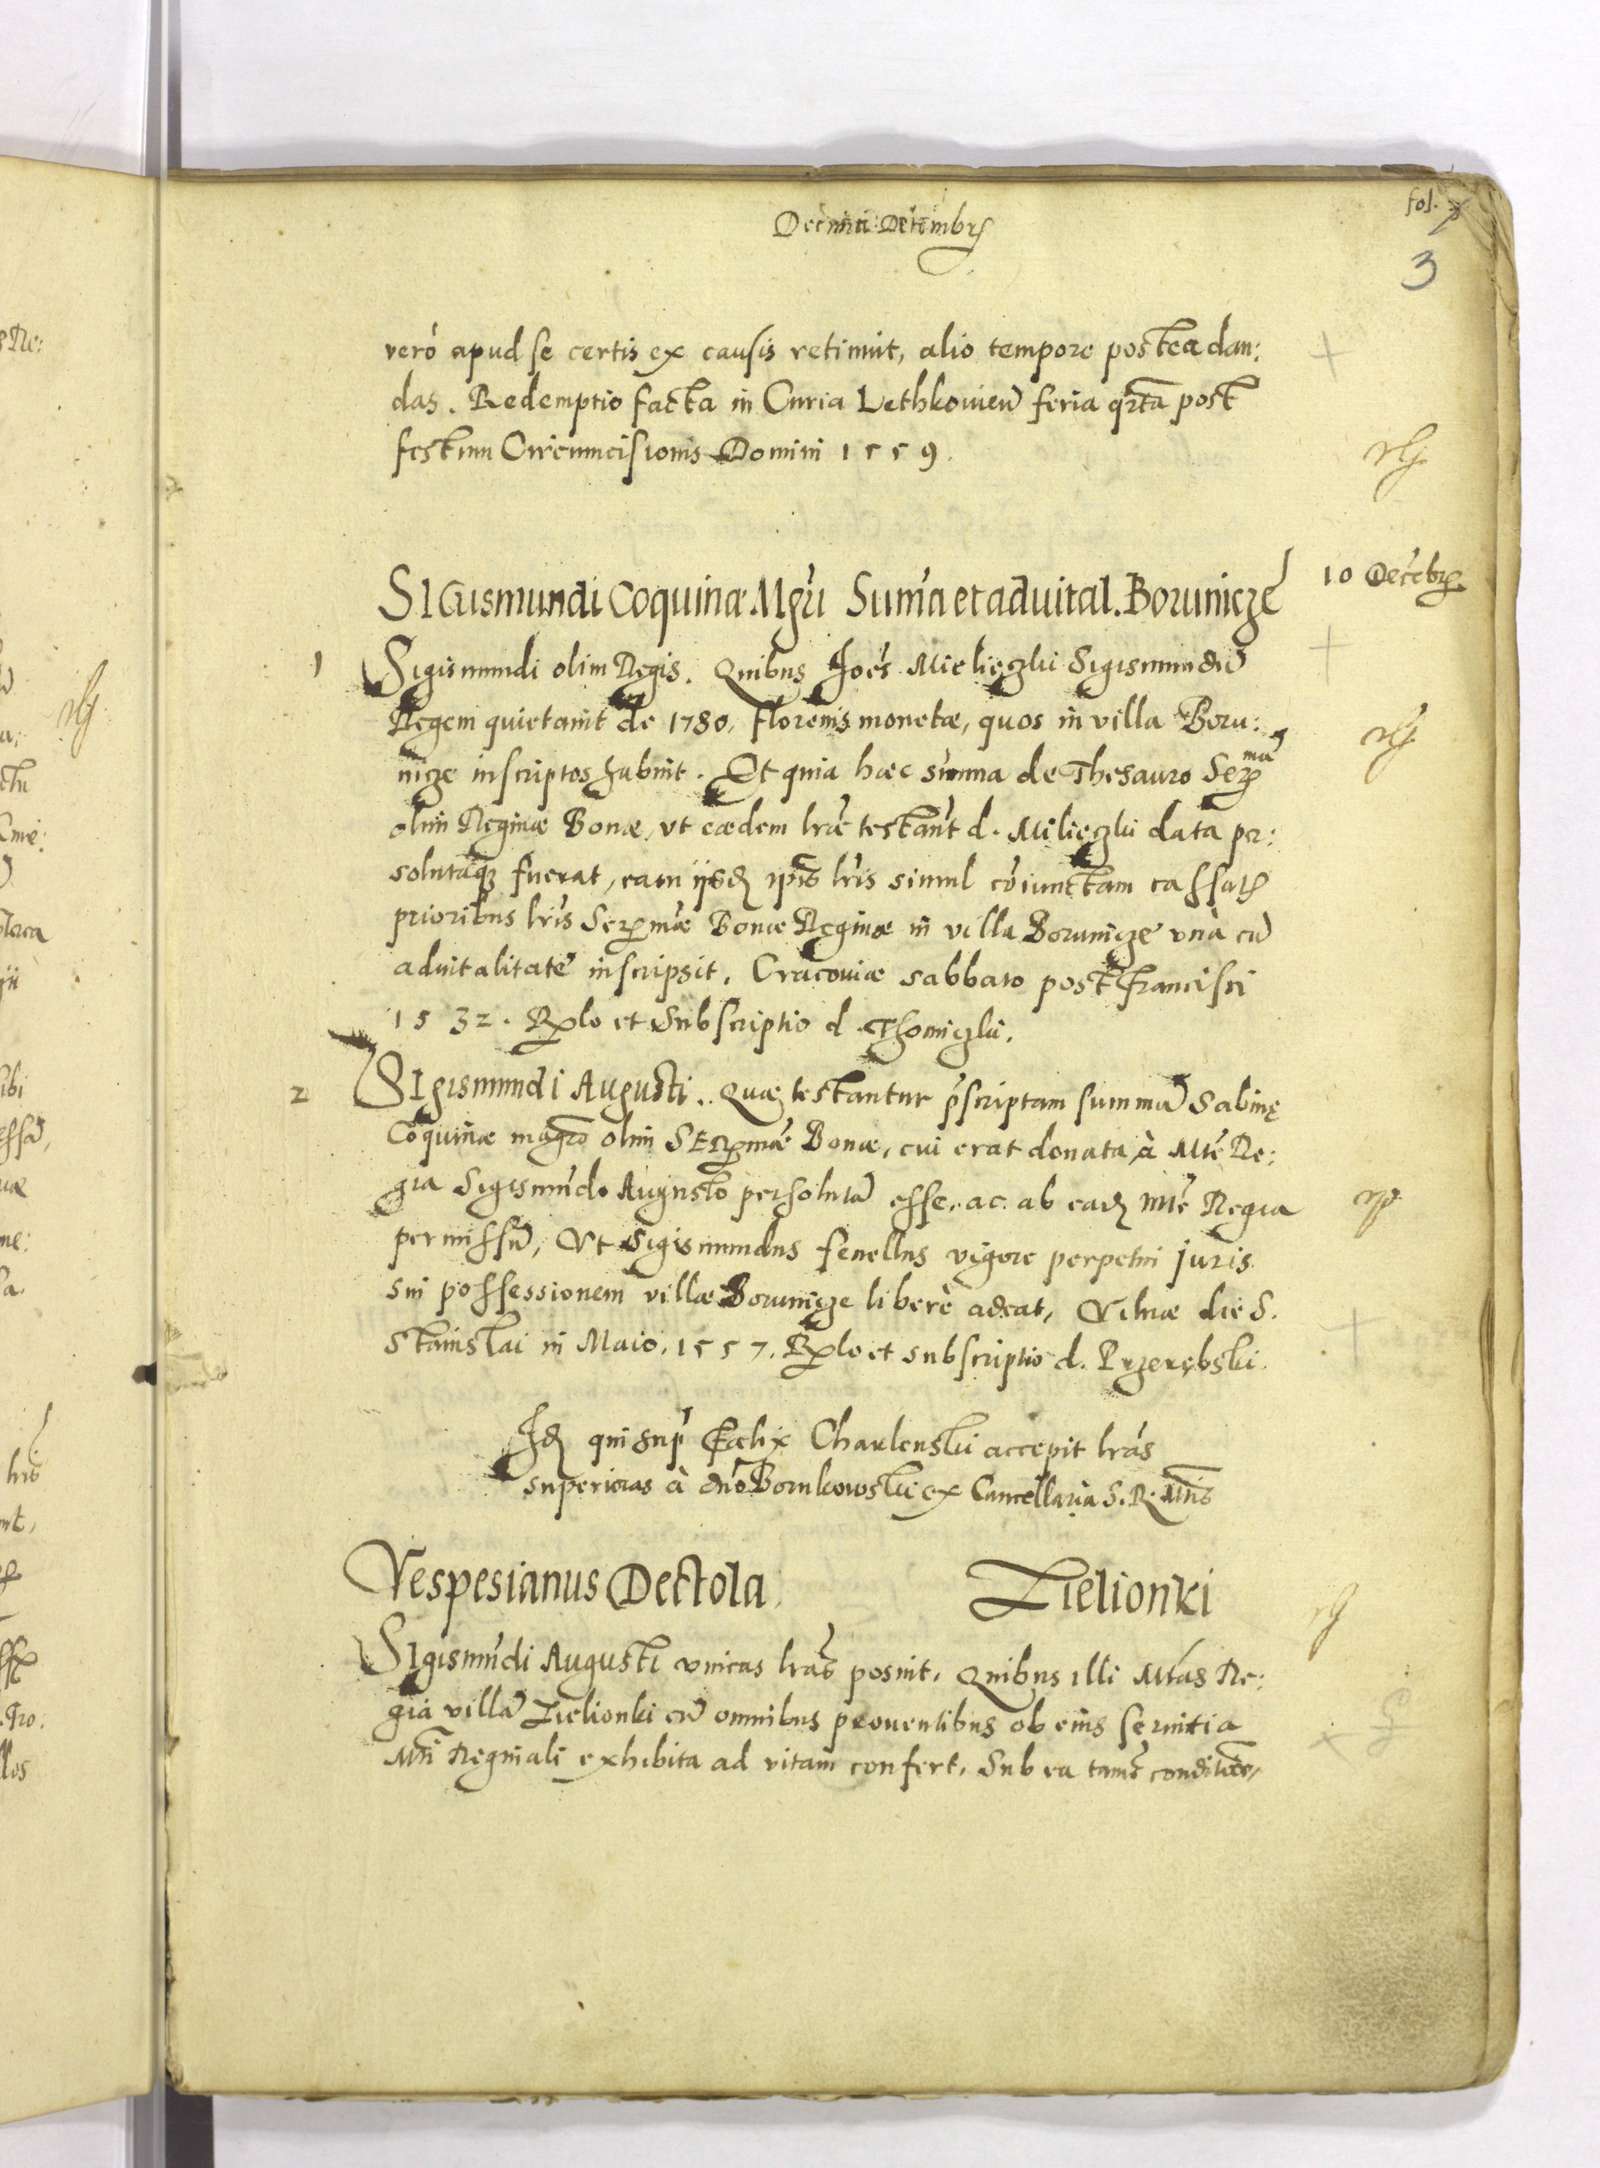 Decima Decembris
fol.
3
verò apud se certis ex causis retinuit, alio tempore postea dan:
das. Redemptio facta in Curia Lethkouien̄ feria qrta post
festum Circumcisionis Domini 1559.
10 Decēbr
SIGismundi Coquinæ Mgri Sum̄a et aduital. Borunicze
1 Sigismundi olim Regis. Quibus Joēs Mieliezki Sigismundū
Regem quietauit de 1780, florenis monetæ, quos in villa Boru:
nicze inscriptos habuit. Et quia hæc sum̄a de Thesauro Serma
olim Reginæ Bonæ, vt eædem lræ testant d. Milieczki data per:
solutaq; fuerat, eam ijsd ipīs lris simul cōiunctam cassatis
prioribus lris Serēmæ Bonæ Reginæ in villa Borunicze vnà cū
aduitalitatē inscripsit. Cracouiæ sabbato post Francisci
1532. Rlo et Subscriptio d. Thomiczki.
2 SIgismundi Augusti. Quæ testantur p̄scriptam summā Sabinę
Coquinæ magrō olim SErmæ Bonæ, cui erat donata, à Mtē Re:
gia Sigismūdo Augusto persolutā esse, ac ab ead Mtē Regia
permissū, Vt Sigismundus fenellus vigore perpetui juris
sui possessionem villæ Borunicze liberè adeat, Vilnæ die S.
Stanislai in Maio. 1557. Rlo et subscriptio d. Przerębski.
Id qui sup Fælix Charlenski accepit lras
superiores à dn̄o Bornkowski ex Cancellaria S. R. Mtis
Vespesianus Dectola Zielionki
SIgismūdi Augusti vnicas lras posuit. Quibus illi Mtas Re:
gia villā Zielionki cū omnibus prouentibus ob eius seruitia
Mti Reginali exhibita ad vitam confert, Sub ea tamē conditiōe,